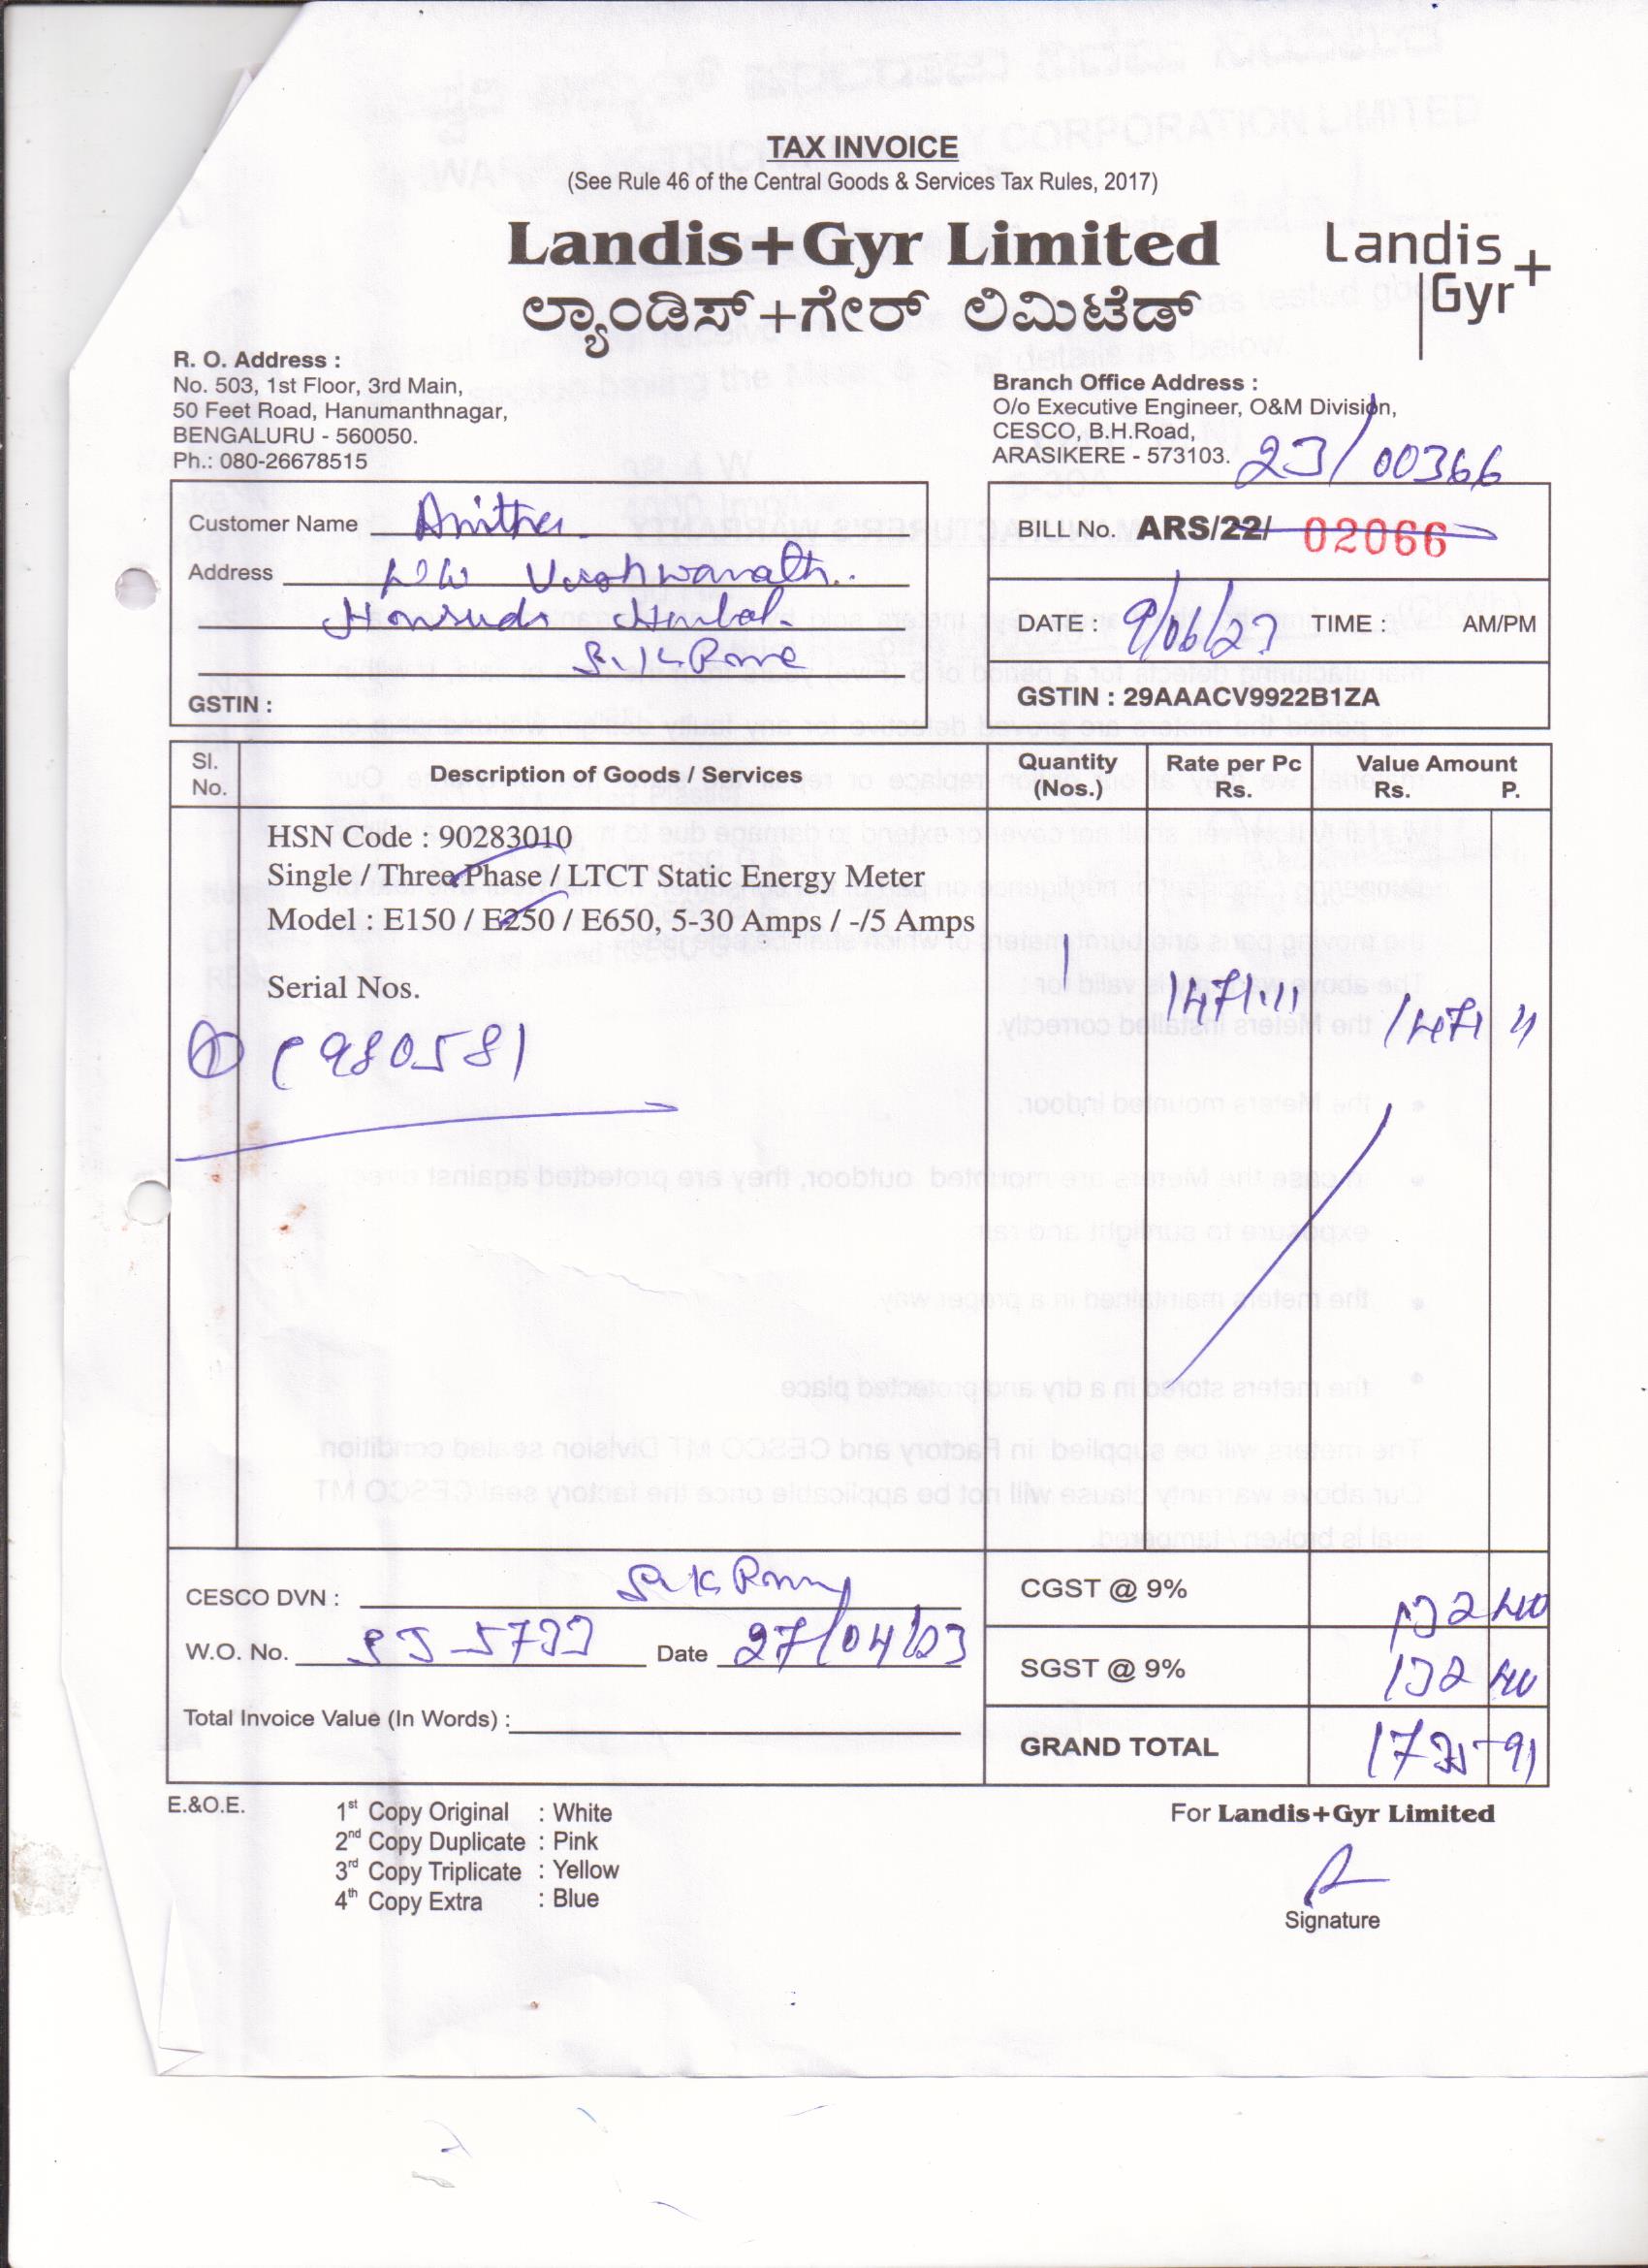 TAX INVOICE
(See Rule 46 of the Central Goods & Services Tax Rules, 2017)
Landis+Gyr Limited
ಲ್ಯಾಂಡಿಸ್+ಗೇರ್ ಲಿಮಿಟೆಡ್
Landis
Gyr+
R. O. Address :
No. 503, 1st Floor, 3rd Main,
50 Feet Road, Hanumanthnagar,
BENGALURU - 560050.
Ph.: 080-26678515
Branch Office Address :
O/o Executive Engineer, O&M Division,
CESCO, B.H.Road,
ARASIKERE - 573103.
23/00366
Customer Name Anitha
Address
GSTIN :
BILL No. ARS/22/ 02066
DATE : 9/06/23 TIME : AM/PM
GSTIN : 29AAACV9922B1ZA
Sl. No. Description of Goods / Services Quantity (Nos.) Rate per Pc Rs. Value Amount Rs. P.
HSN Code : 90283010
Single / Three Phase / LTCT Static Energy Meter
Model : E150 / E250 / E650, 5-30 Amps / -/5 Amps
Serial Nos. 1 1471.11 1471 11
① 980581
CESCO DVN :
CGST @ 9% 132 40
W.O. No. Date 27/04/23
SGST @ 9% 132 40
Total Invoice Value (In Words) :
GRAND TOTAL 1735 91
E.&O.E.
1st Copy Original : White
2nd Copy Duplicate : Pink
3rd Copy Triplicate : Yellow
4th Copy Extra : Blue
For Landis+Gyr Limited
Signature